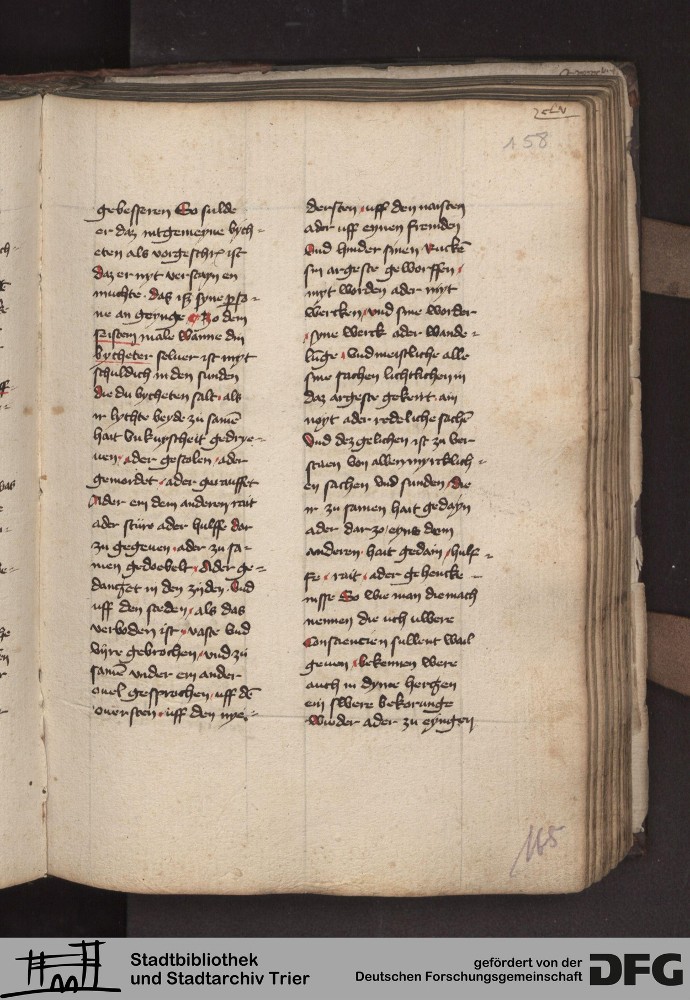 158
gebesseren So sulde
er daz intgemeyne bych=
eten als vorgeschr ist
daz er nyt verstayn en
muchte. das iß syne p̲so=
ne an geynge Zo dem
seisten male Wanne du
bycheter selver ist myt
schuldich in den sunden
die du bycheten salt, als
ir lychte beyde zü samē
hait Vnkuyscheit gedrye=
uen, ader gestolen, ader
gemordet, ader gerausst
Ader ein dem anderen rait
ader stüre ader hulffe dar
zu gegeuen, ader zu sa=
men gedoebelt, Ader ge=
dantzet in den zijden, Vnd
uff den steden, als das
verboden ist, vaste Vnd
vyre gebrochen, vnd zü
samē vnder ein ander
ouel gesprochen, uff dē
ouersten, uff den nye=
dersten, uff den naisten
ader uff eynen fremden
Vnd hinder sinen Ruckē
sin argeste geworffen,
myt Worden ader myt
Wercken, vnd sine Worder
, syne Werck ader Wande=
lüge, Vnd meistliche alle
sine sachen lichtlichen in
daz argeste gekert ain
noyt ader redeliche sachē
Vnd dez gelichen ist zu ver
staen von allen myrcklich=
en sachen Vnd sunden, die
ir zu samen hait gedayn
ader dar zo, eyns dem
anderen hait gedain, hulf=
fe, rait, ader gehenck
nisse So wie man die mach
nennen die uch uwere
Consciencien sullent wail
geuen, bekennen Were
auch in dyme hertzen
ein swere bekorunge
Wieder ader zu eyngen
165
Stadtbibliothek
und Stadtarchiv Trier
gefördert von der
Deutschen Forschungsgemeinschaft
DFG